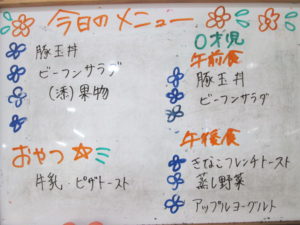 今日のメニュー
豚玉丼
ビーフンサラダ
(添)果物
おやつ
牛乳 ピザトースト
0才児
午前食
豚玉丼
ビーフンサラダ
午後食
きなこフレンチトースト
蒸し野菜
アップルヨーグルト